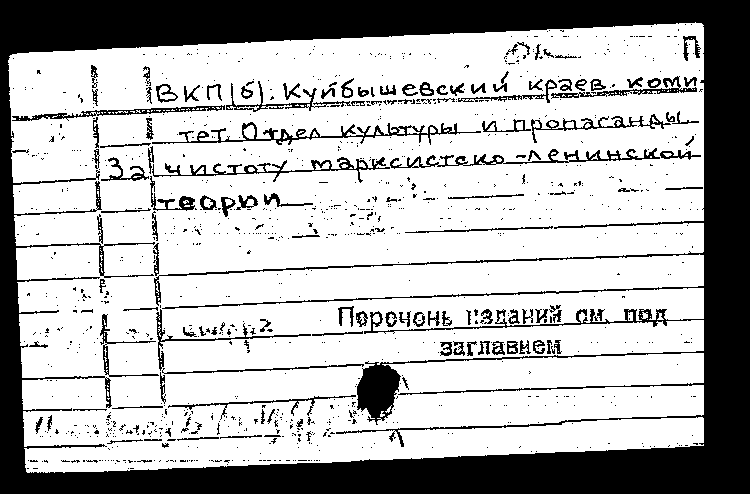 П
ВКП(б). Куйбышевский краев. коми-
тет. Отдел культуры и пропаганды
За чистоту марксистско-ленинской
теории
Перечень изданий см. под
заглавием